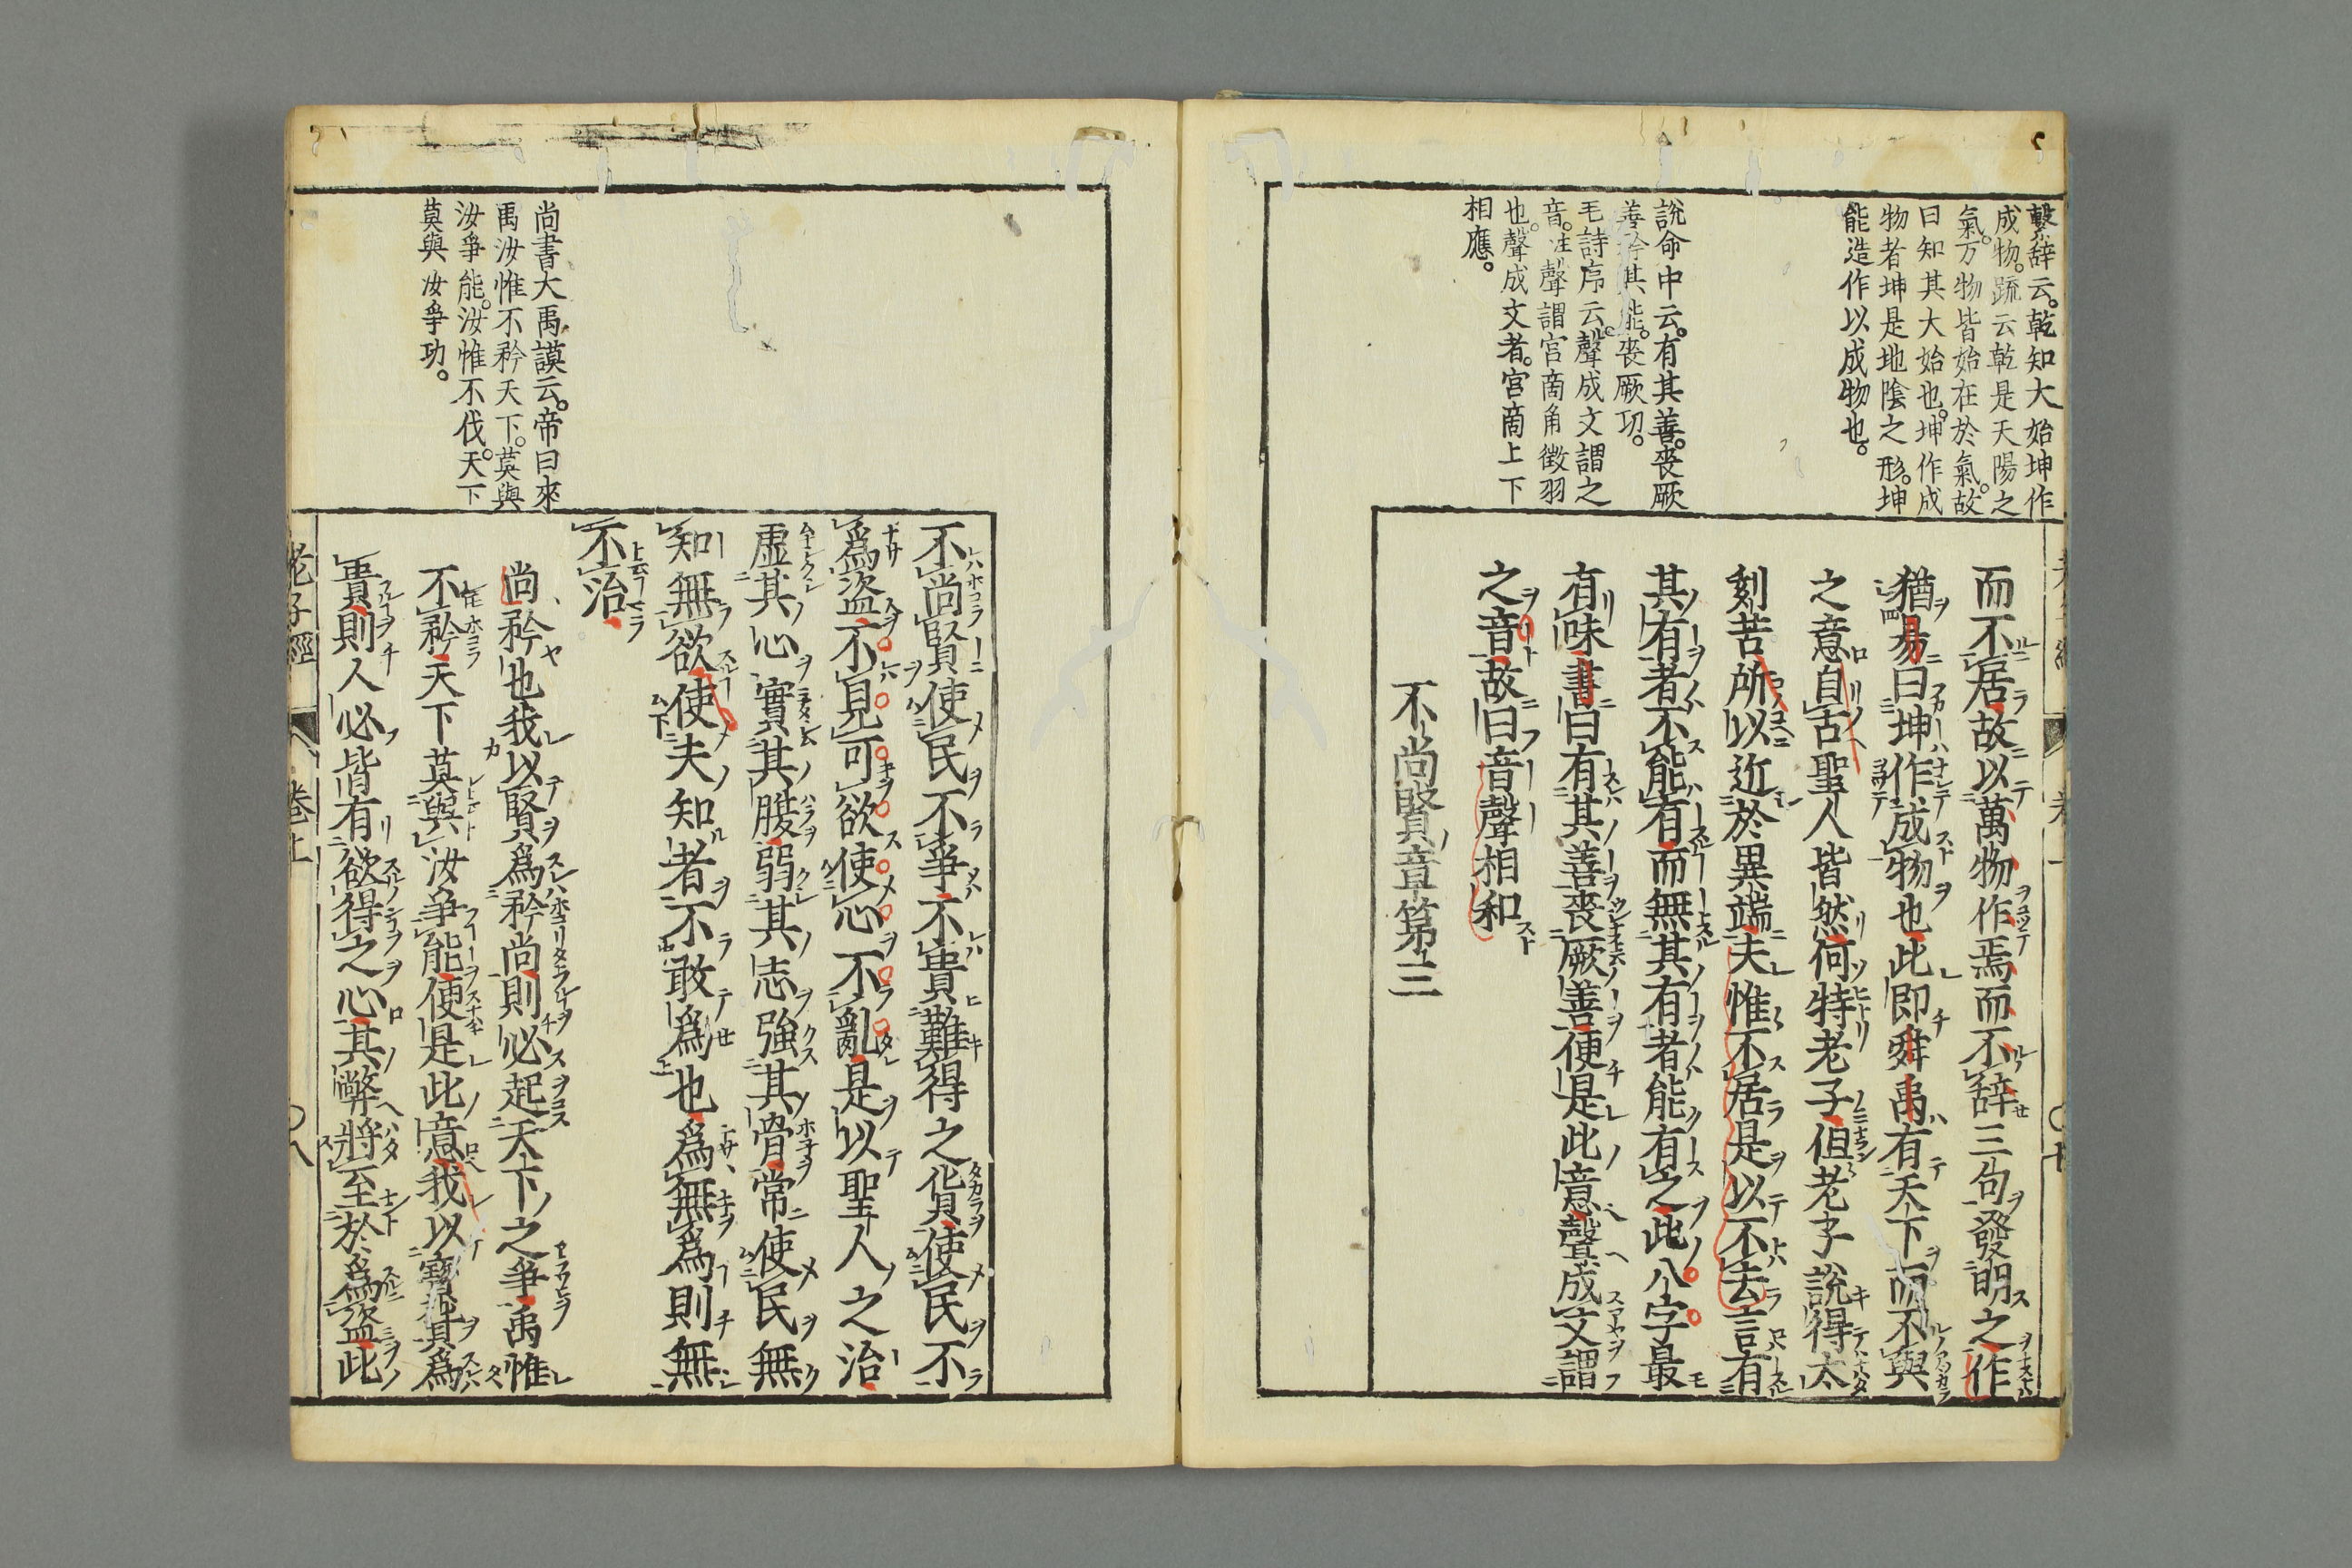 繫辭云。乾知大始坤作
成物。疏云乾是天陽之
氣。万物皆始在於氣。故
曰知其大始也。坤作成
物者坤是地陰之形。坤
能造作以成物也。
說命中云。有其善。喪厥
善矜其能。喪厥功。
毛詩序云。聲成文謂之
音。注聲謂宮商角徵羽
也。聲成文者。宮商上下
相應。
而不居故以萬物作焉而不辭三句發明之作
猶易曰坤作成物也此即舜禹有天下而不與
之意自古聖人皆然何特老子但老子說得太
刻苦所以近於異端夫惟不居是以不去言有
其有者不能有而無其有者能有之此八字最
有味書曰有其善喪厥善便是此意聲成文謂
之音故曰音聲相和
不尚賢章第三
尚書大禹謨云。帝曰來
禹汝惟不矜天下。莫與
汝爭能。汝惟不伐。天下
莫與汝爭功。
不尚賢使民不爭不貴難得之貨使民不
爲盜不見可欲使心不亂是以聖人之治
虛其心實其腹弱其志強其骨常使民無
知無欲使夫知者不敢爲也爲無爲則無
不治
尚矜也我以賢爲矜尚則必起天下之爭禹惟
不矜天下莫與汝爭能便是此意我以寶貨爲
貴則人必皆有欲得之心其弊將至於爲盜此
老子經 卷上 〇八